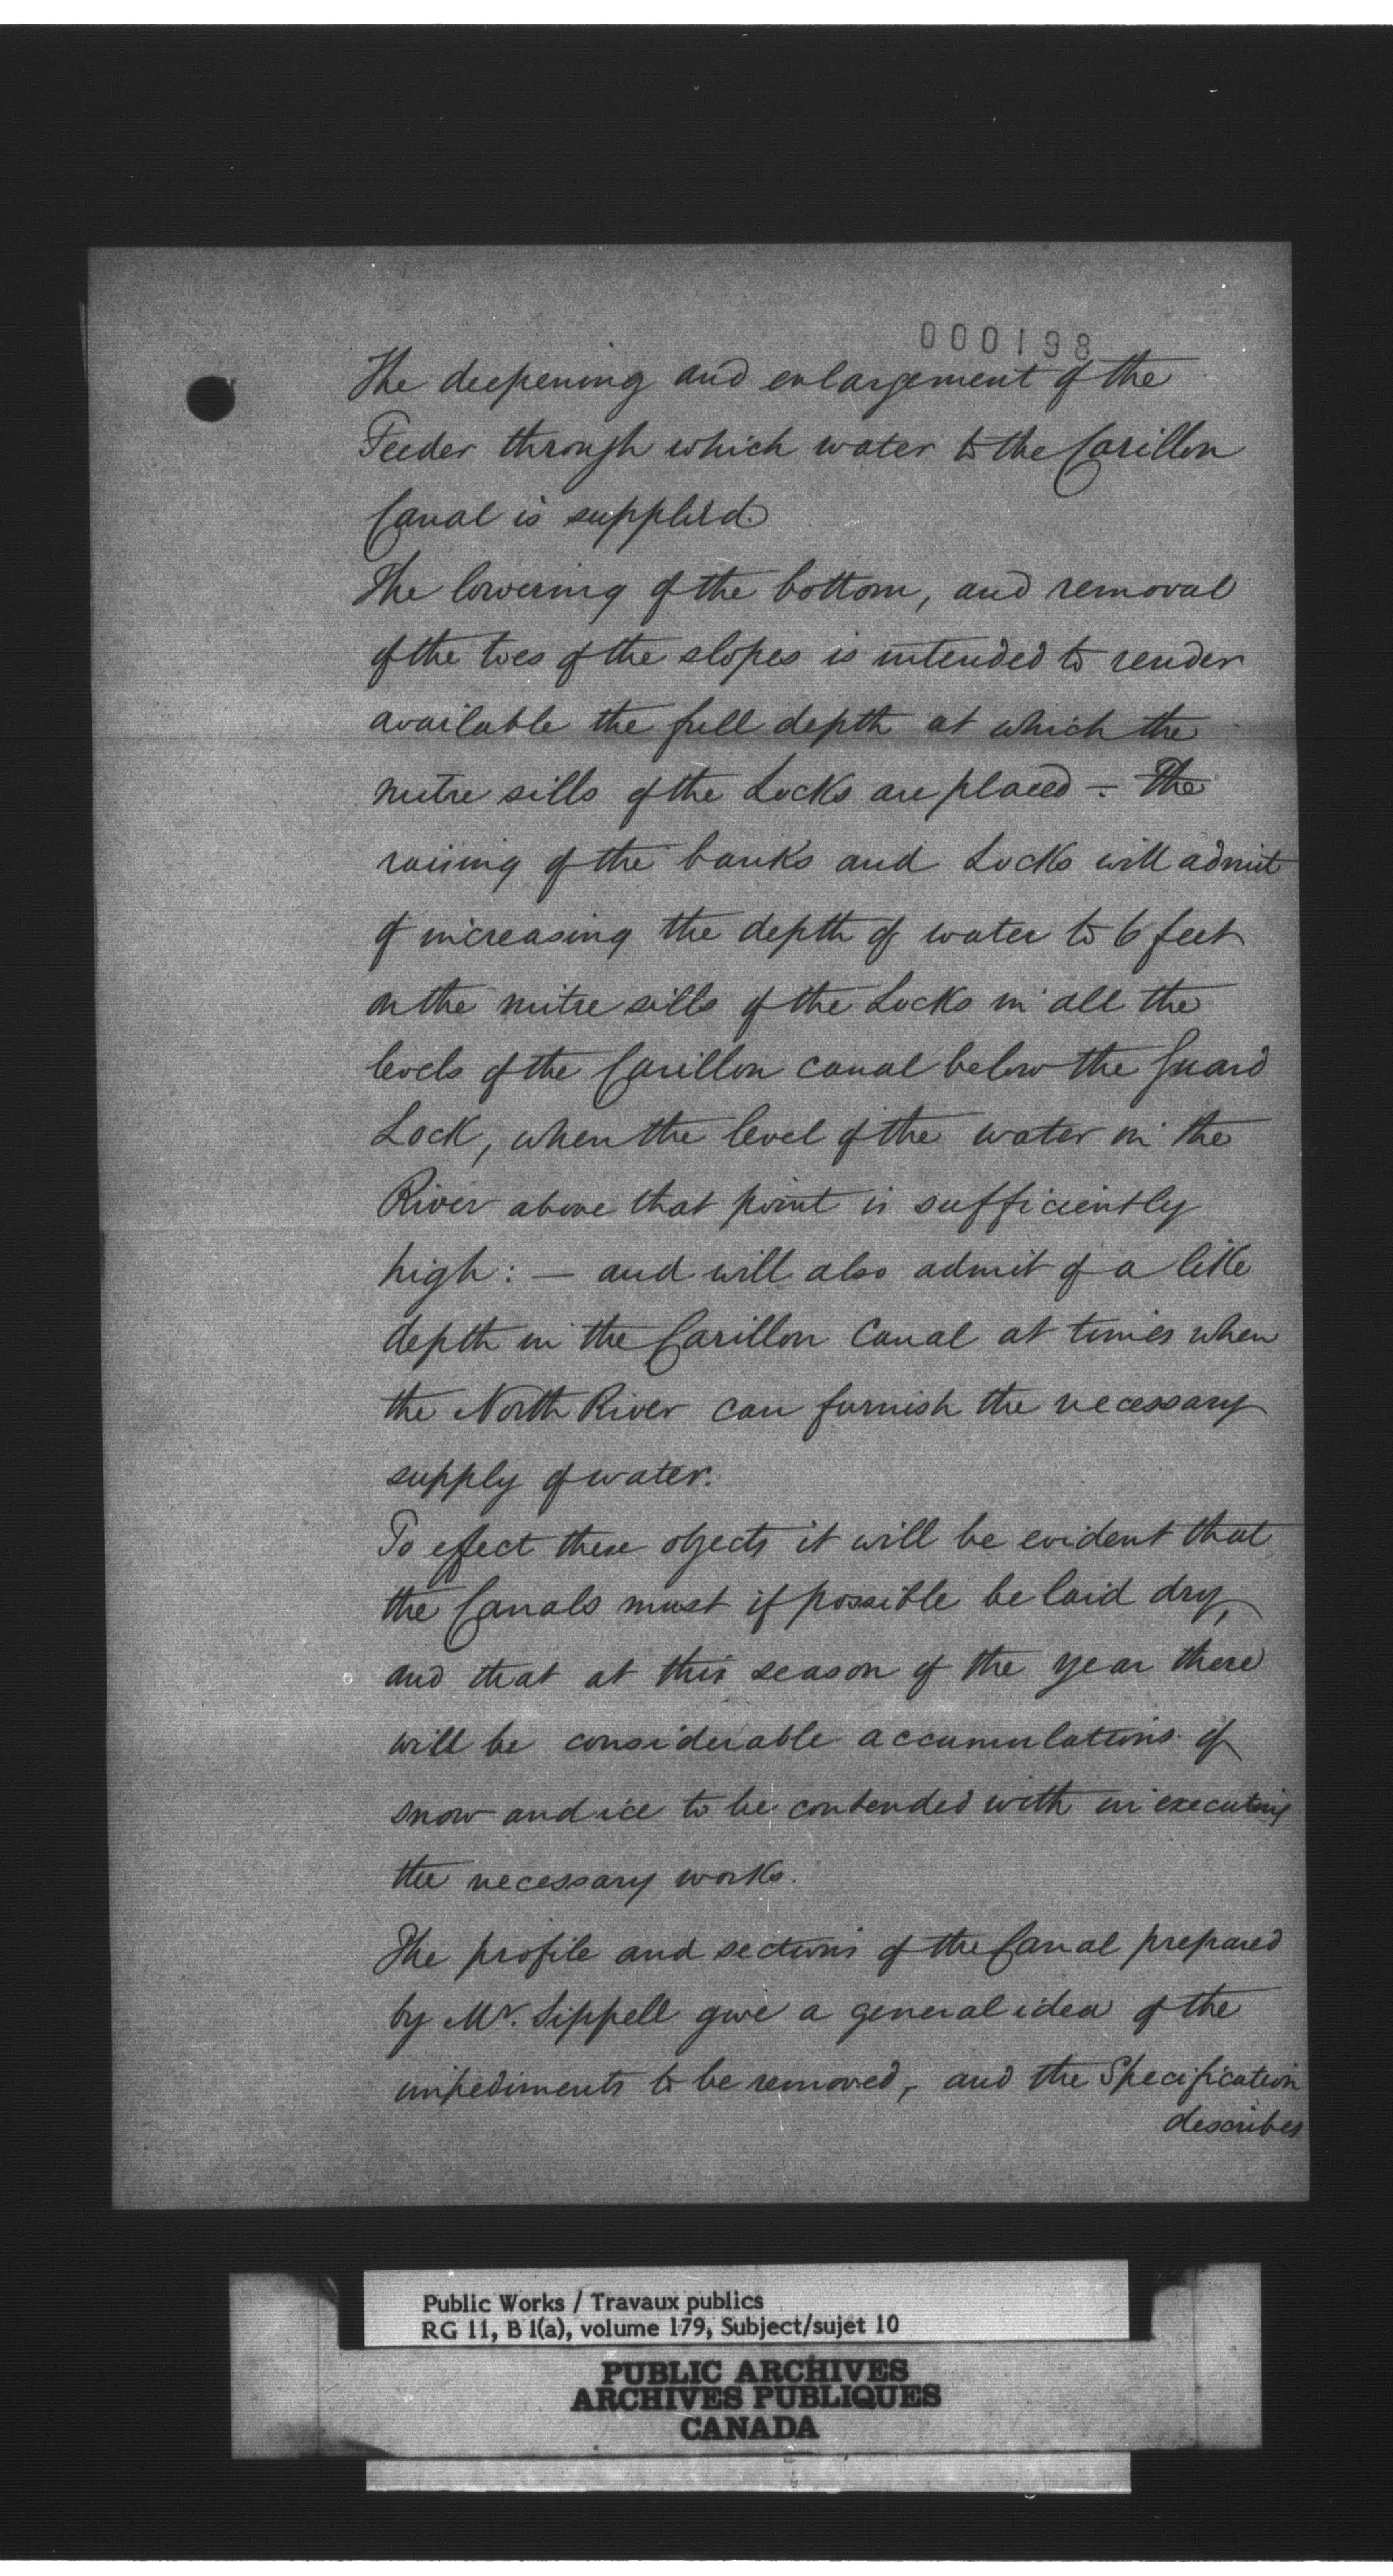 000198
The deepening and enlargement of the
Feeder through which water to the Carillon
Canal is supplied.
The lowering of the bottom, and removal
of the toes of the slopes is intended to render
available the full depth at which the
mitre sills of the Locks are placed — The
raising of the banks and Locks will admit
of increasing the depth of water to 6 feet
on the mitre sills of the Locks in all the
levels of the Carillon canal below the Guard
Lock, when the level of the water in the
River above that point is sufficiently
high : — and will also admit of a like
depth in the Carillon Canal at times when
the North River can furnish the necessary
supply of water.
To effect these objects it will be evident that
the Canals must if possible be laid dry,
and that at this season of the year there
will be considerable accumulations of
snow and ice to be contended with in executing
the necessary works.
The profile and sections of the Canal prepared
by Mr. Sippell give a general idea of the
impediments to be removed, and the Specification
describes
Public Works / Travaux publics
RG 11, B 1(a), volume 179, Subject/sujet 10
PUBLIC ARCHIVES
ARCHIVES PUBLIQUES
CANADA